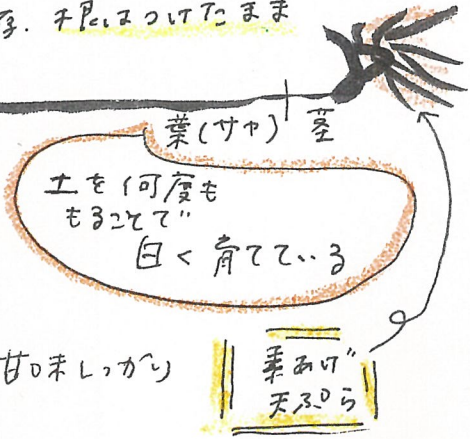 根はつけたまま
葉(サヤ) 茎
土を何度も
もることで
白く育てている
甘味しっかり
素あげ
天ぷら